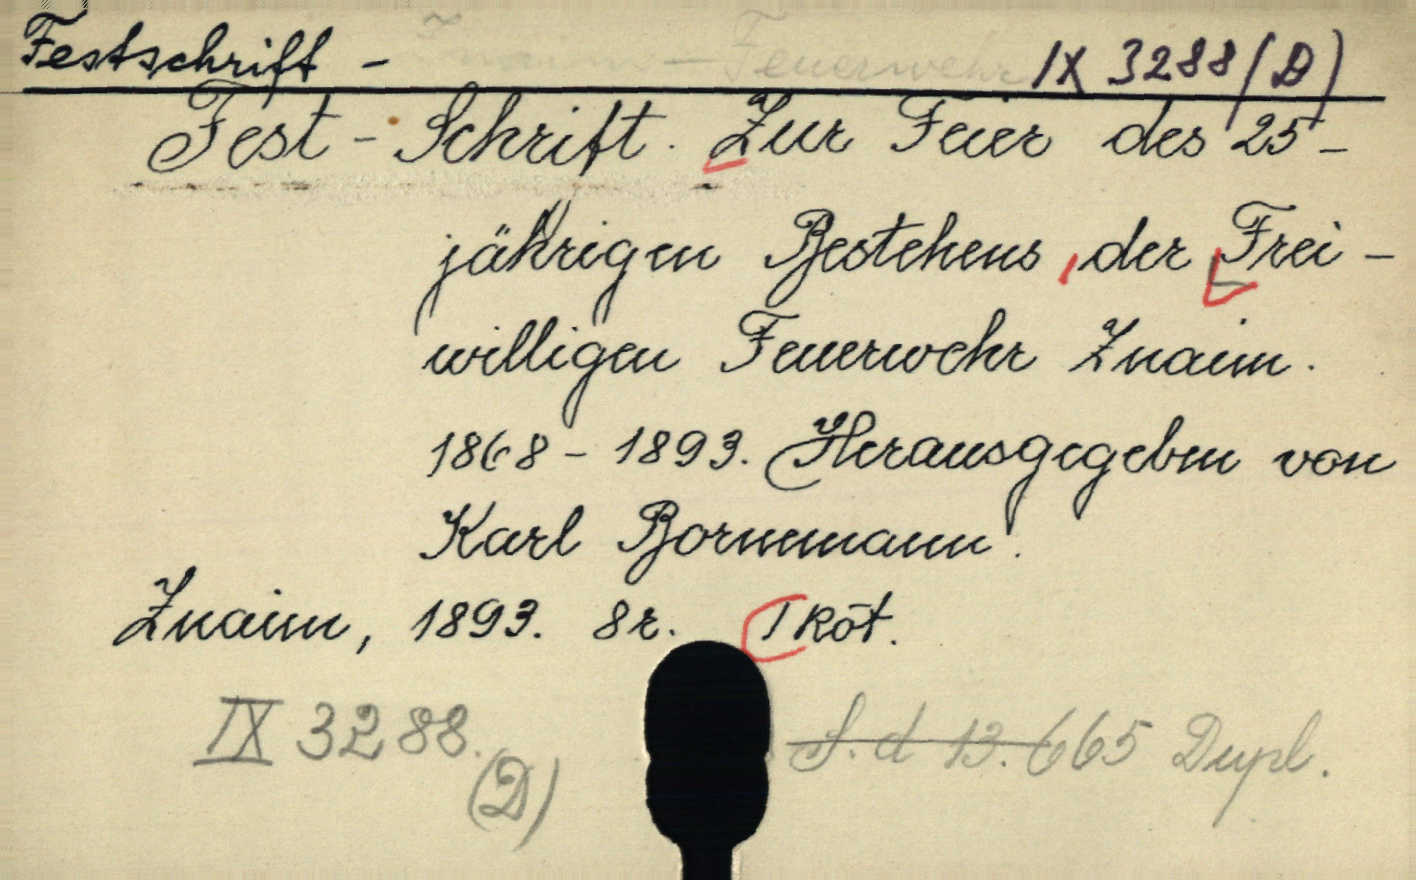 Festschrift - Znaim - Feuerwehr IX 3288 (D)
Fest-Schrift. Zur Feier des 25-
jährigen Bestehens der Frei-
willigen Feuerwehr Znaim.
1868 - 1893. Herausgegeben von
Karl Bornemann.
Znaim, 1893. 8r. 1 köt.
IX 3288. (D) S. d 13.665 Dupl.